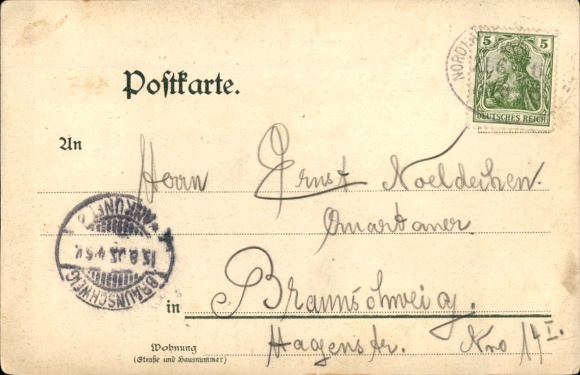 5 5
DEUTSCHES REICH
NORD
Postkarte.
An
Herrn Ernst Noeldechen.
Quartaner
ANKUNFT
15.8.03.4-5V.
BRAUNSCHWEIG
in Braunschweig.
Hagenstr. Nro 14 I.
Wohnung
(Straße und Hausnummer)